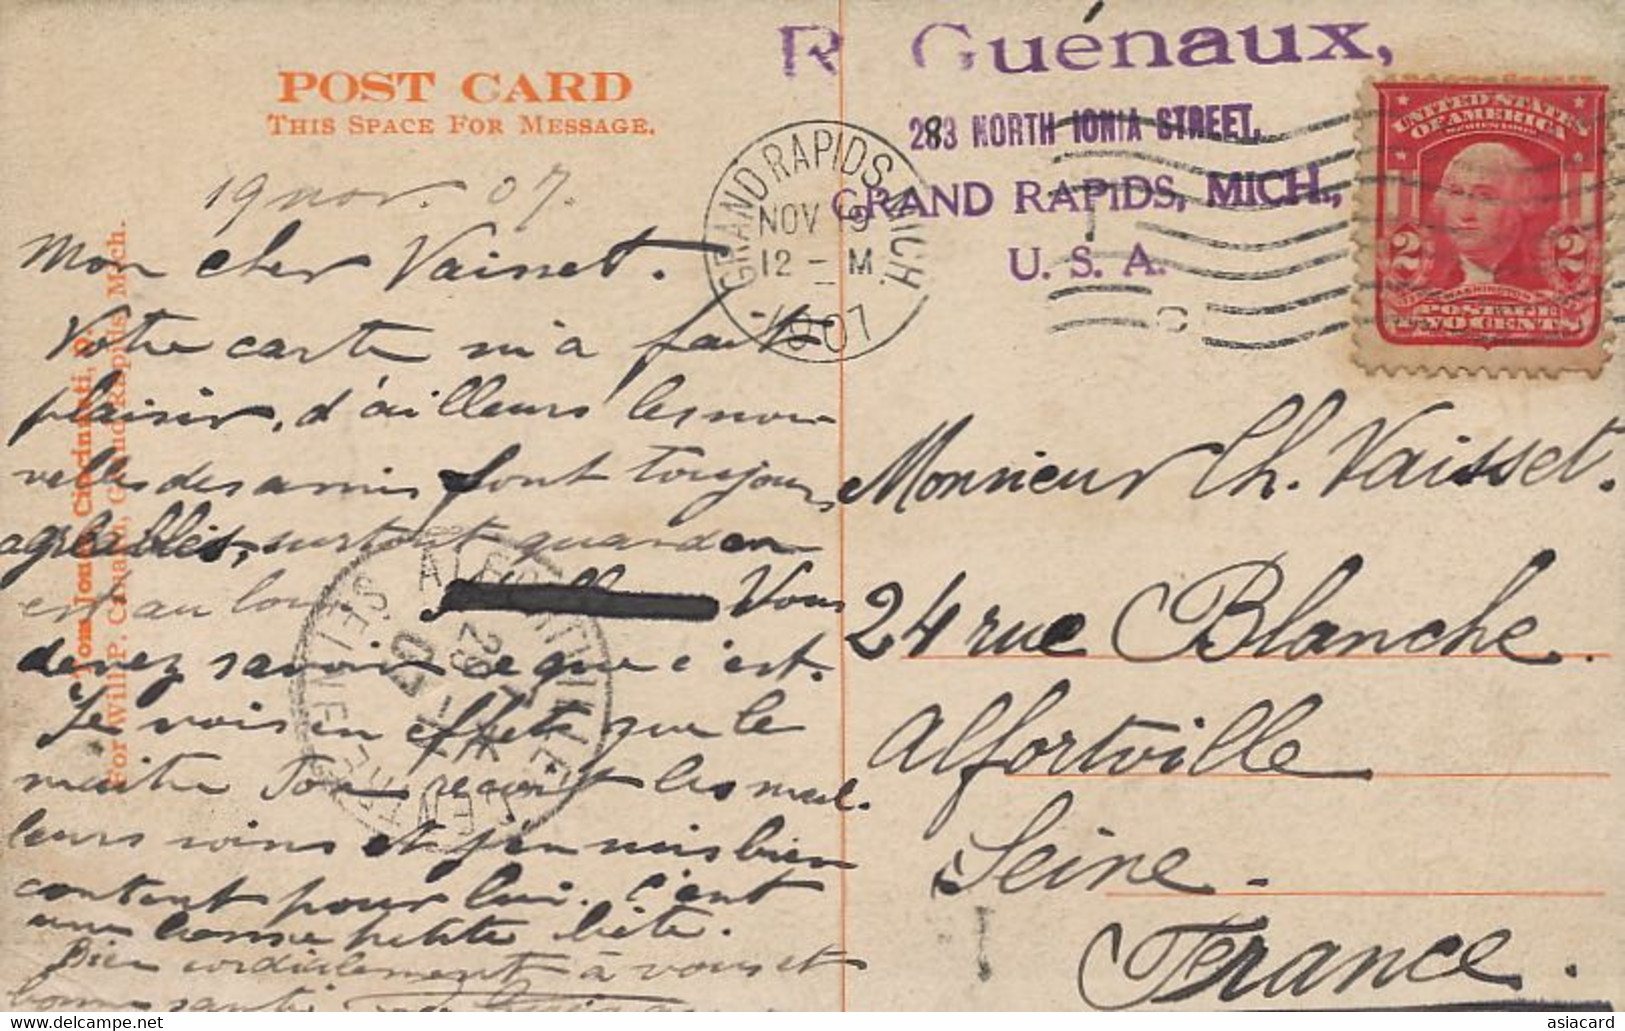 POST CARD
THIS SPACE FOR MESSAGE.
R. Guénaux,
283 NORTH IONIA STREET,
GRAND RAPIDS, MICH.,
U. S. A.
GRAND RAPIDS, MICH.
NOV 19
12 - M
1907
UNITED STATES
OF AMERICA
SERIES 1902
2 2
WASHINGTON
POSTAGE
TWO CENTS
19 nov. 07.
Mon cher Vaisset.
Votre carte m'a fait
plaisir, d'ailleurs les nou-
velles des amis font toujours
agréables, surtout quand on
est au loin Vous
devez savoir ce que c'est.
Je vois en effet que le
maitre Tom reçoit les meil-
leurs soins et j'en suis bien
content pour lui. C'est
une bonne petite bête.
Bien cordialement à vous et
bonne santé
Tom Jones, Cincinnati, O.
For Will P. Canaan, Grand Rapids, Mich.
ALFORTVILLE
29 - 11
07
SEINE
Monsieur Ch. Vaisset.
24 rue Blanche.
Alfortville
Seine.
France.
delcampe.net
asiacard